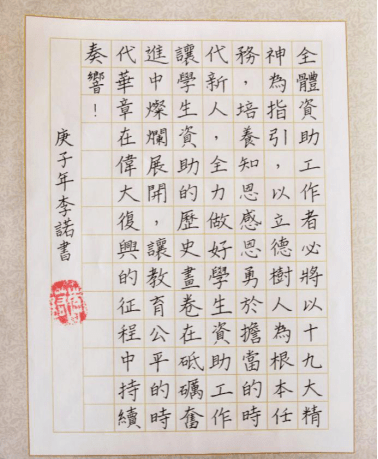 全體資助工作者必將以十九大精
神為指引，以立德樹人為根本任
務，培養知恩感恩勇於擔當的時
代新人，全力做好學生資助工作
讓學生資助的歷史畫卷在砥礪奮
進中燦爛展開，讓教育公平的時
代華章在偉大復興的征程中持續
奏響！
庚子年李諾書